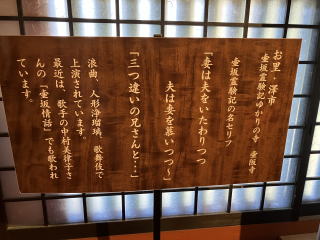 お里・澤市
壺坂霊験記ゆかりの寺　壺阪寺
壺坂霊験記の名セリフ
「妻は夫をいたわりつつ
夫は妻を慕いつつ～」
「三つ違いの兄さんと…」
浪曲、人形浄瑠璃、歌舞伎で
上演されています。
最近は、歌手の中村美律子さ
んの『壺坂情話』でも歌われ
ています。